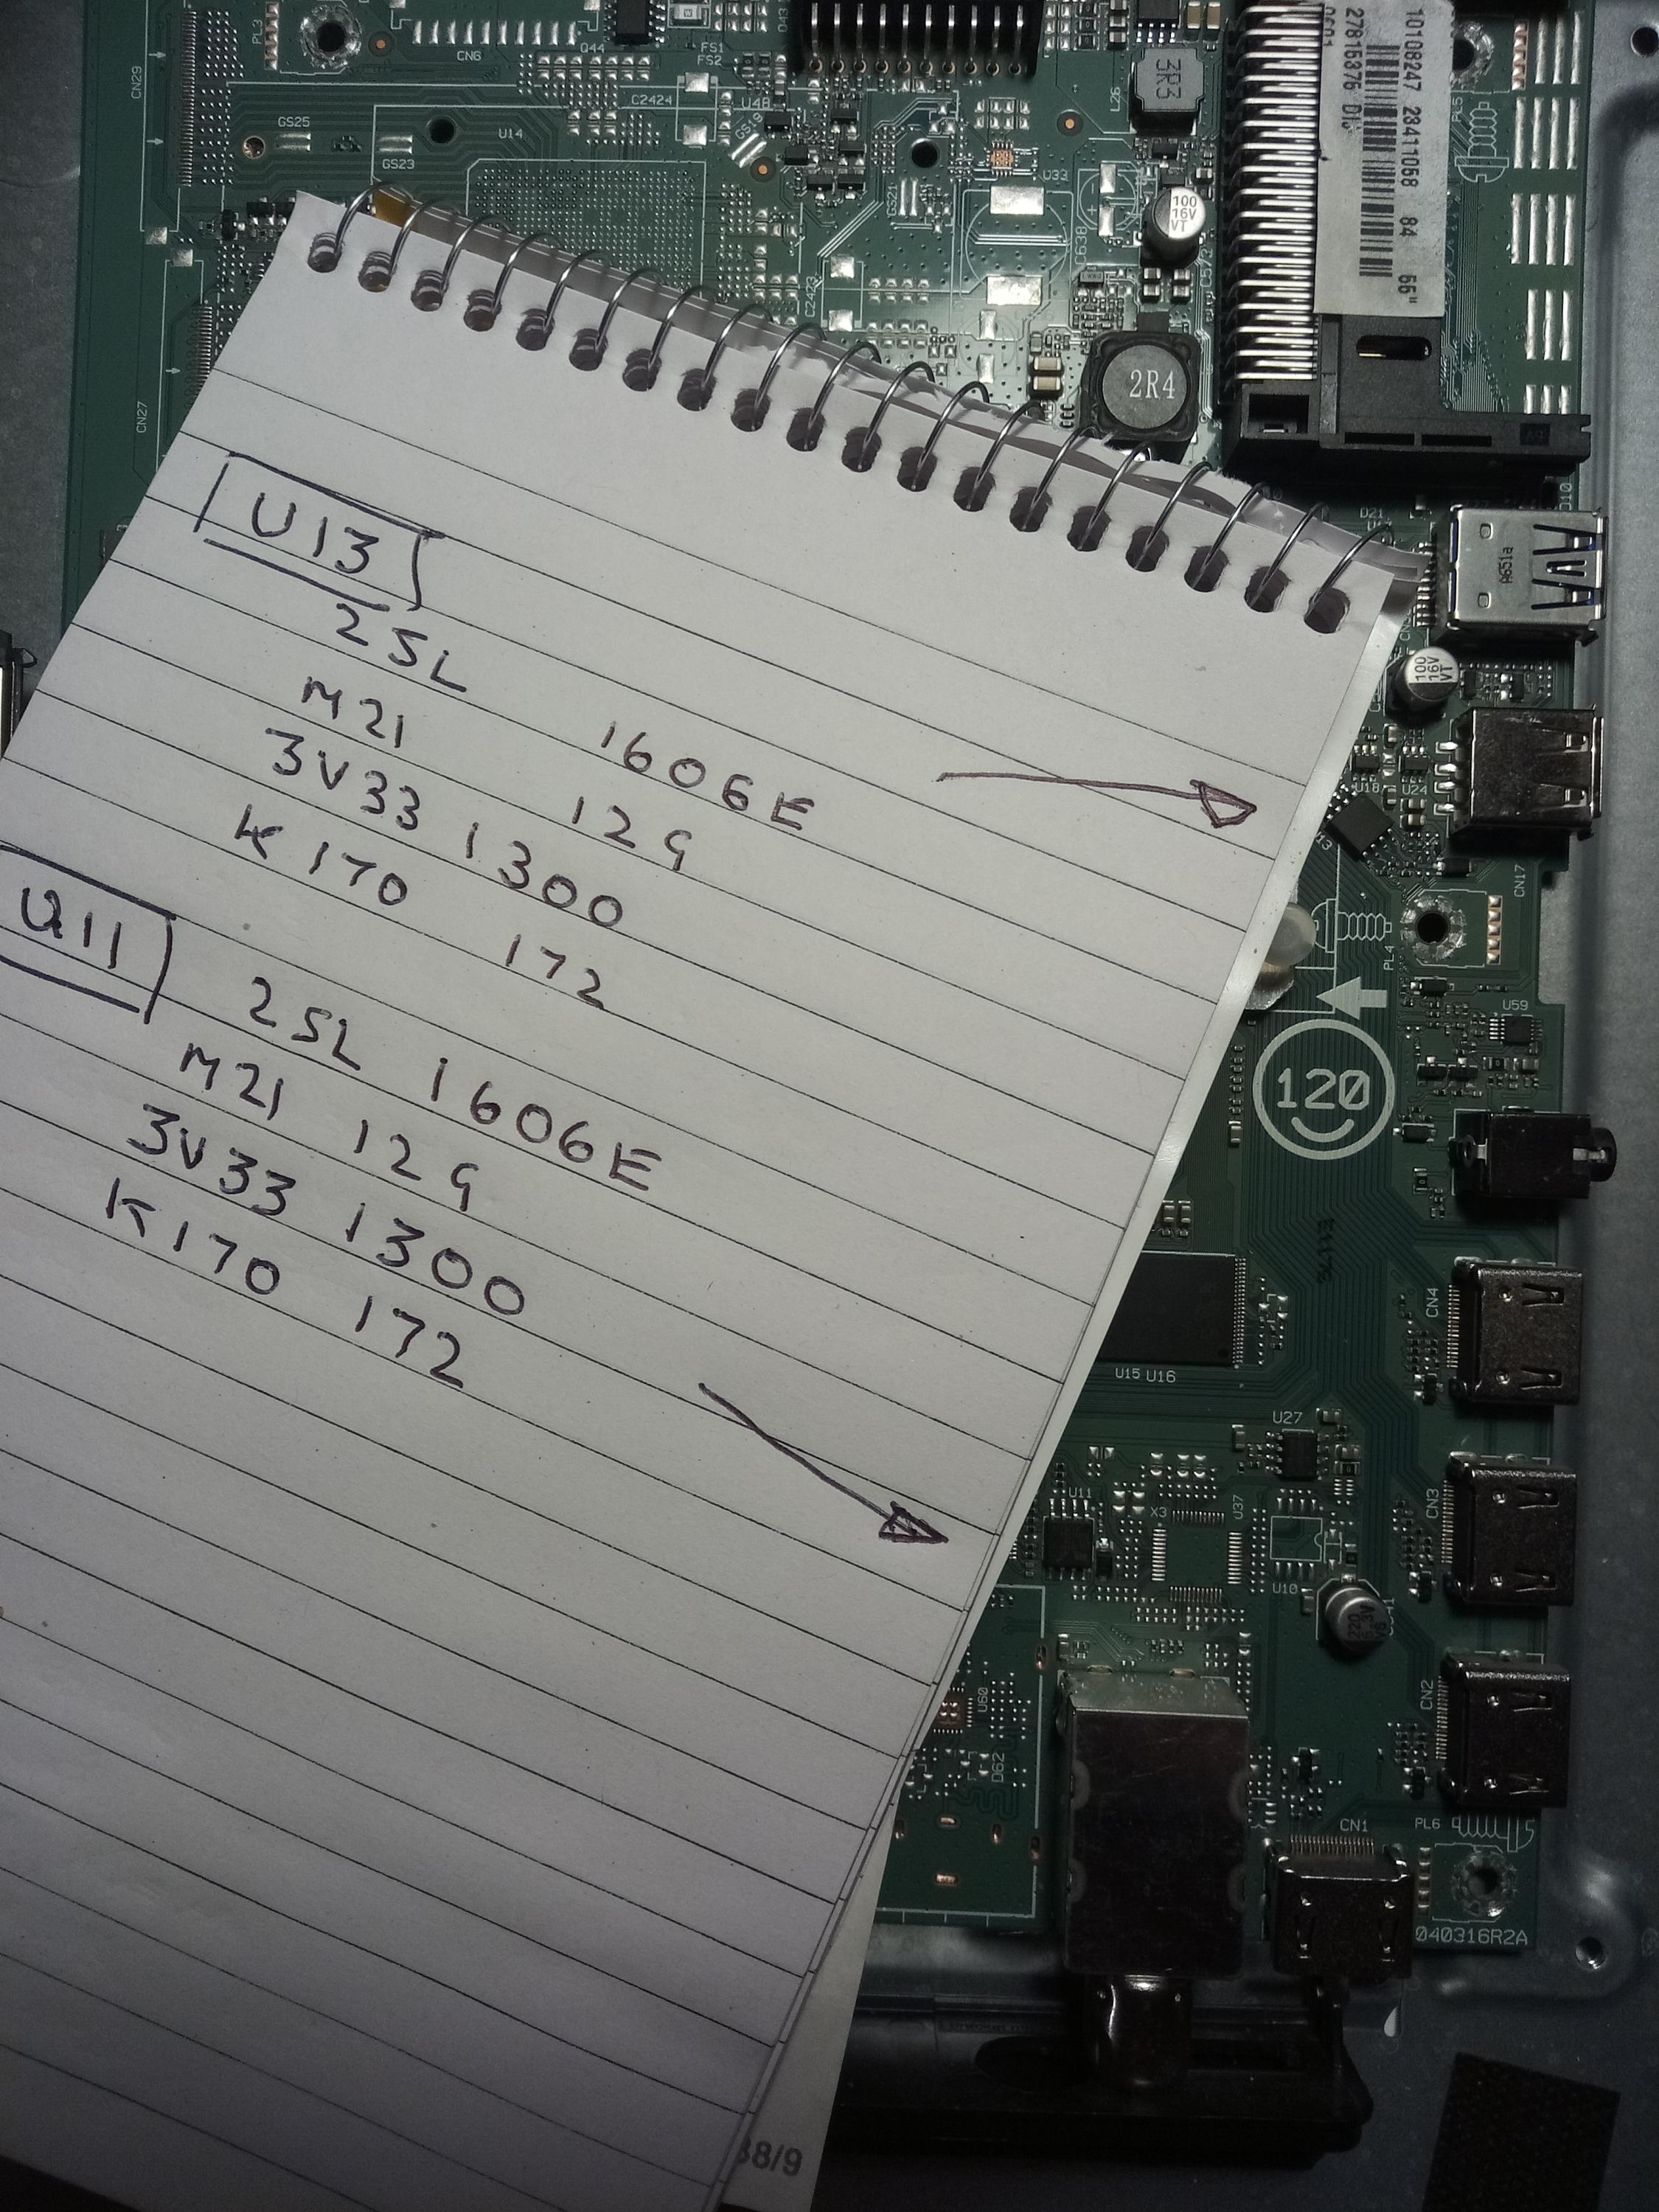 CN29
PL3
CN6
Q44
FS1
FS2
3R3
L26
10108247 28411058 84 65"
27815375
PL5
GS25
U14
GS23
C2424
U48
GS19
U33
GS21
100
16V
VT
C2423
2R4
CN27
D21
A651a
100
16V
VT
U18
U24
CN17
PL4
U59
120
CN4
U15 U16
U27
U11
X3
U37
CN3
U10
220
6.3V
VS
CN2
U60
D62
CN1
PL6
040316R2A
U13
25L 1606E
M21 12G
3V33 1300
K170 172
U11
25L 1606E
M21 12G
3V33 1300
K170 172
38/9